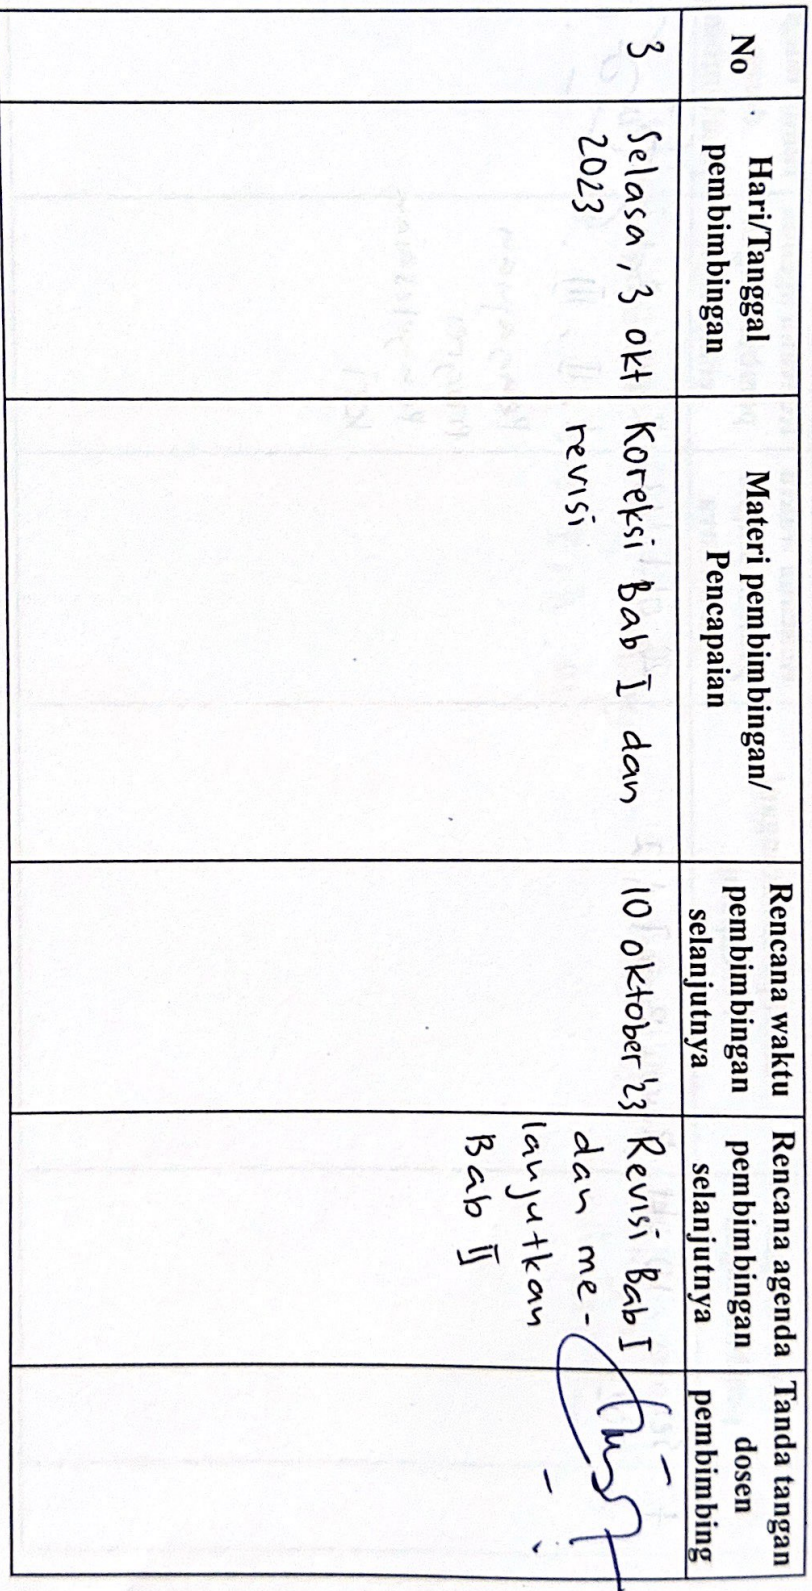 No
Hari/Tanggal
pembimbingan
Materi pembimbingan/
Pencapaian
Rencana waktu
pembimbingan
selanjutnya
Rencana agenda
pembimbingan
selanjutnya
Tanda tangan
dosen
pembimbing
3
Selasa, 3 okt
2023
Koreksi Bab I dan
revisi
10 oktober '23
Revisi Bab I
dan me-
lanjutkan
Bab II